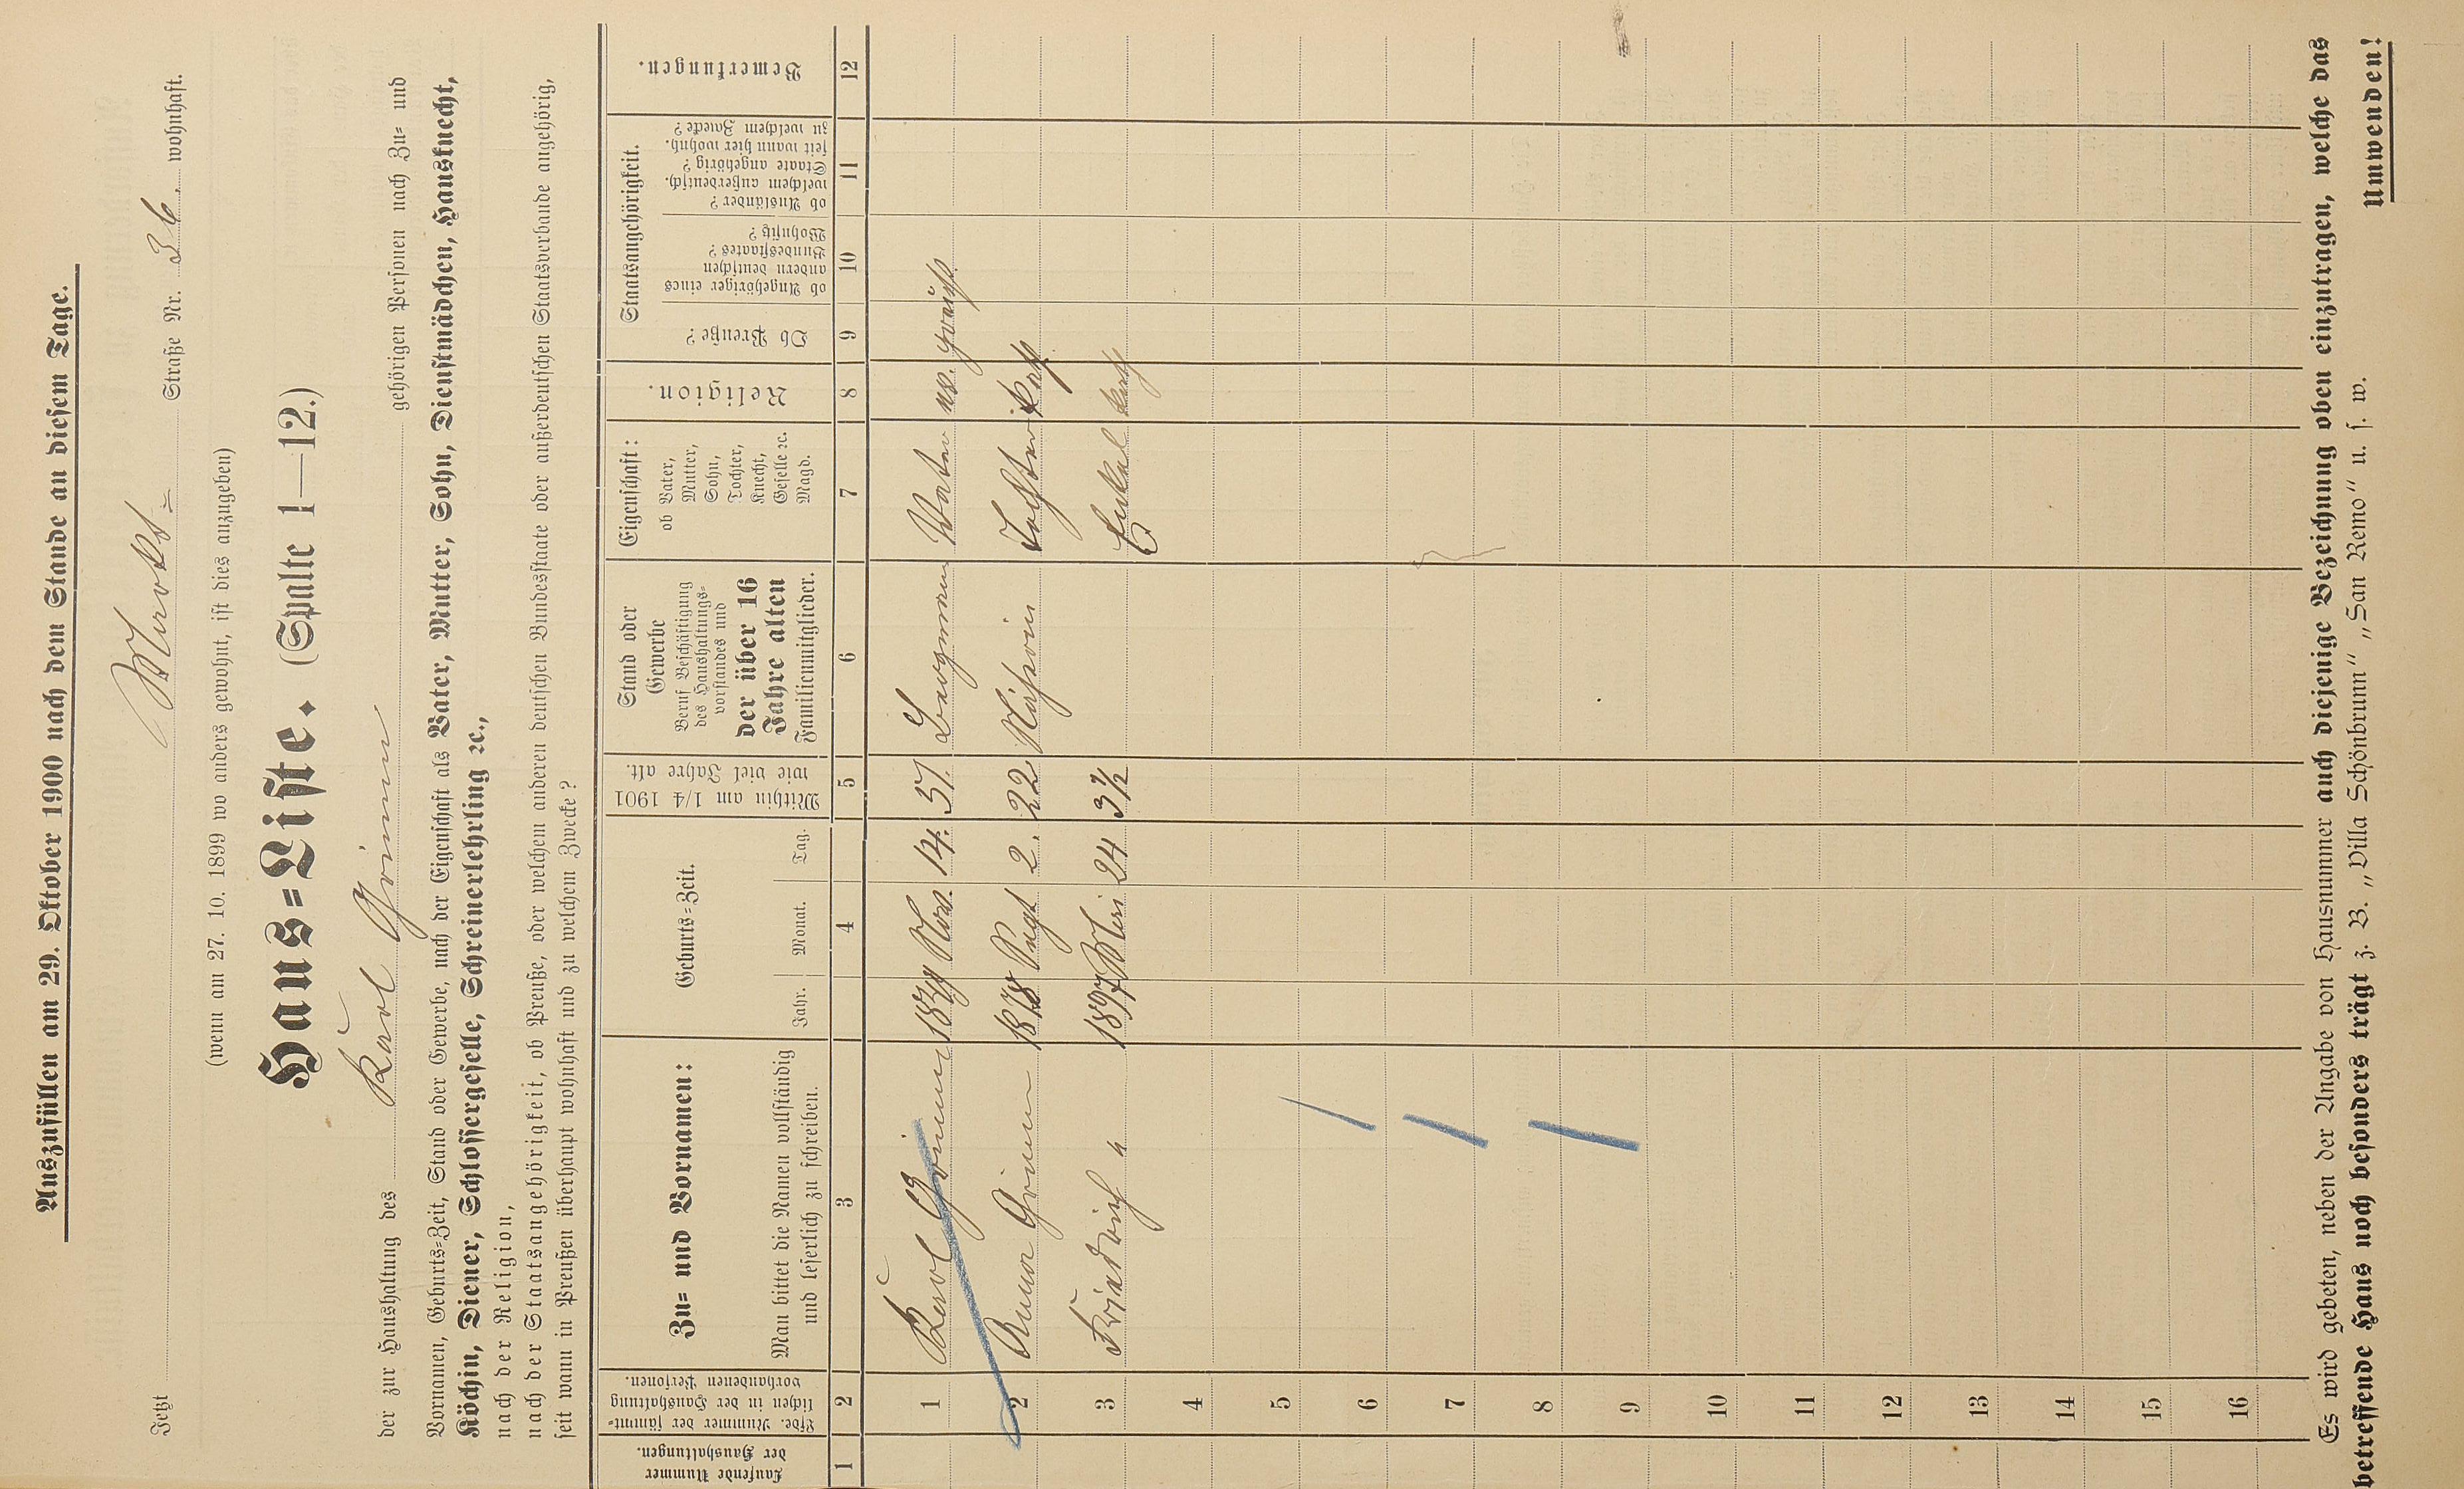 Auszufüllen am 29. Oktober 1900 nach dem Stande an diesem Tage.
Jetzt Markt= Straße Nr. 36. wohnhaft.
(wenn am 27. 10. 1899 wo anders gewohnt, ist dies anzugeben)
Haus=Liste. (Spalte 1—12.)
der zur Haushaltung des Karl Grimm gehörigen Personen nach Zu= und
Vornamen, Geburts=Zeit, Stand oder Gewerbe, nach der Eigenschaft als Vater, Mutter, Sohn, Dienstmädchen, Hausknecht,
Köchin, Diener, Schlossergeselle, Schreinerlehrling ꝛc.,
nach der Religion,
nach der Staatsangehörigkeit, ob Preuße, oder welchem anderen deutschen Bundesstaate oder außerdeutschen Staatsverbande angehörig,
seit wann in Preußen überhaupt wohnhaft und zu welchem Zwecke?
Laufende Nummer
der Haushaltungen.
Lfde. Nummer der sämmt=
lichen in der Haushaltung
vorhandenen Personen.
Zu= und Vornamen:
Man bittet die Namen vollständig
und leserlich zu schreiben.
Geburts=Zeit.
Jahr. Monat. Tag.
Mithin am 1/4 1901
wie viel Jahre alt.
Stand oder
Gewerbe
Beruf Beschäftigung
des Haushaltungs=
vorstandes und
der über 16
Jahre alten
Familienmitglieder.
Eigenschaft:
ob Vater,
Mutter,
Sohn,
Tochter,
Knecht,
Geselle ꝛc.
Magd.
Religion.
Staatsangehörigkeit.
Ob Preuße?
ob Angehöriger eines
andern deutschen
Bundesstaates?
Wohnsitz?
ob Ausländer?
welchem außerdeutsch.
Staate angehörig?
seit wann hier wohnh.
zu welchem Zwecke?
Bemerkungen.
1 2 3 4 5 6 7 8 9 10 11 12
1 Karl Grimm Nov. 14. Vater ev.
2 Anna Grimm 1878 2. 22 Näherin Tochter kath
3 Friedrich " 1897 Mai 24 3½ Enkel kath
4
5
6
7
8
9
10
11
12
13
14
15
16
Es wird gebeten, neben der Angabe von Hausnummer auch diejenige Bezeichnung oben einzutragen, welche das
betreffende Haus noch besonders trägt z. B. „Villa Schönbrunn" „San Remo" u. s. w.
Umwenden!